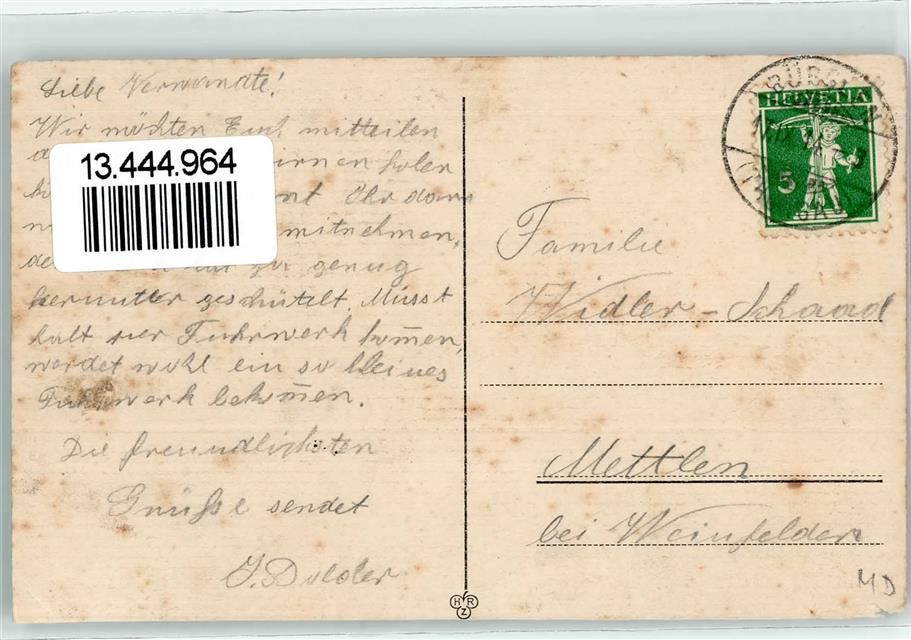 Liebe Verwandte!
Wir möchten Euch mitteilen
13.444.964
irnen holen
Ihr dann
mitnehmen,
zu genug
herunter geschüttelt. Müsst
halt per Fuhrwerk kom̄en,
werdet wohl ein so kleines
Fuhrwerk bekom̄en.
Die freundlichsten
Grüsse sendet
J. Dolder
HELVETIA
5
Familie
Widler-Schaad
Mettlen
bei Weinfelden
MD
H R
Z